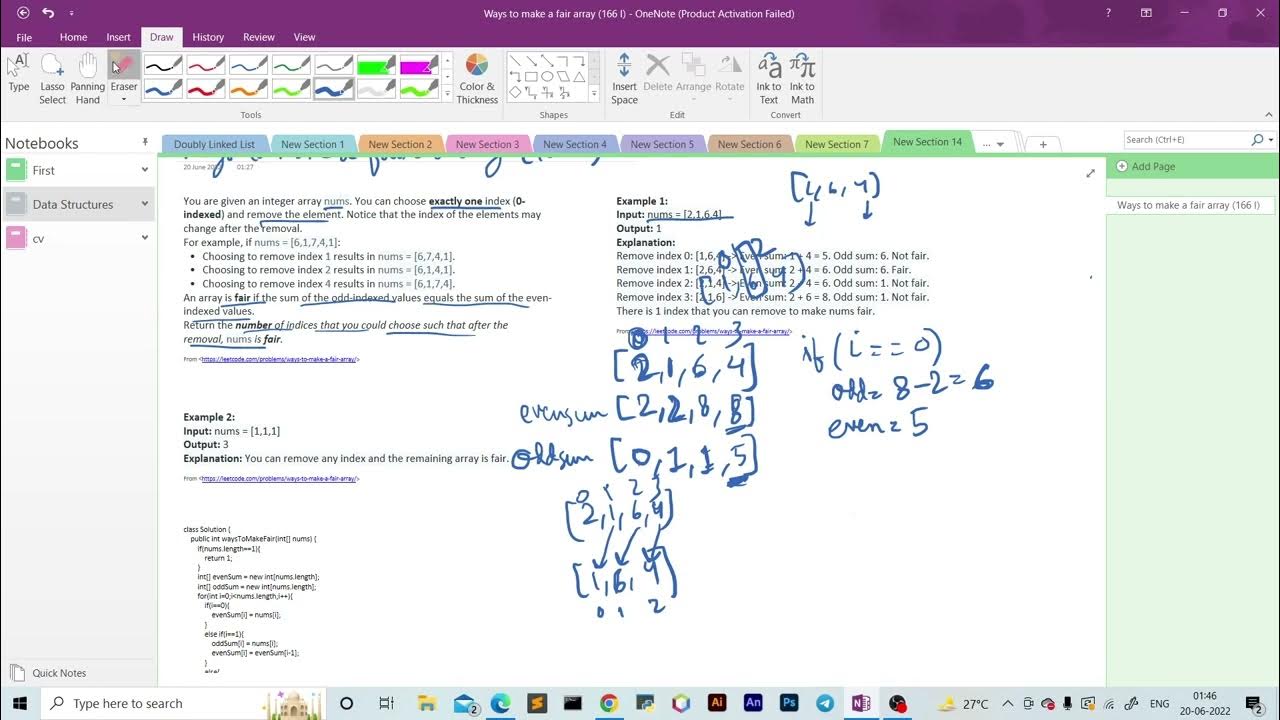 Ways to make a fair array (166 I) - OneNote (Product Activation Failed)
File Home Insert Draw History Review View
Type Lasso Select Panning Hand Eraser Color & Thickness Insert Space Delete Arrange Rotate Ink to Text Ink to Math
Tools Shapes Edit Convert
Notebooks
First
Data Structures
cv
Quick Notes
Doubly Linked List New Section 1 New Section 2 New Section 3 New Section 4 New Section 5 New Section 6 New Section 7 New Section 14 ... +
Search (Ctrl+E)
Add Page
Ways to make a fair array (166 I)
01:27
You are given an integer array nums. You can choose exactly one index (0-
indexed) and remove the element. Notice that the index of the elements may
change after the removal.
For example, if nums = [6,1,7,4,1]:
• Choosing to remove index 1 results in nums = [6,7,4,1].
• Choosing to remove index 2 results in nums = [6,1,4,1].
• Choosing to remove index 4 results in nums = [6,1,7,4].
An array is fair if the sum of the odd-indexed values equals the sum of the even-
indexed values.
Return the number of indices that you could choose such that after the
removal, nums is fair.
From <https://leetcode.com/problems/ways-to-make-a-fair-array/>
Example 2:
Input: nums = [1,1,1]
Output: 3
Explanation: You can remove any index and the remaining array is fair.
From <https://leetcode.com/problems/ways-to-make-a-fair-array/>
class Solution {
public int waysToMakeFair(int[] nums) {
if(nums.length==1){
return 1;
}
int[] evenSum = new int[nums.length];
int[] oddSum = new int[nums.length];
for(int i=0;i<nums.length;i++){
if(i==0){
evenSum[i] = nums[i];
}
else if(i==1){
oddSum[i] = nums[i];
evenSum[i] = evenSum[i-1];
}
else{
Example 1:
Input: nums = [2,1,6,4]
Output: 1
Explanation:
Remove index 0: [1,6,4] -> Even sum: 1 + 4 = 5. Odd sum: 6. Not fair.
Remove index 1: [2,6,4] -> Even sum: 2 + 4 = 6. Odd sum: 6. Fair.
Remove index 2: [2,1,4] -> Even sum: 2 + 4 = 6. Odd sum: 1. Not fair.
Remove index 3: [2,1,6] -> Even sum: 2 + 6 = 8. Odd sum: 1. Not fair.
There is 1 index that you can remove to make nums fair.
https://leetcode.com/problems/ways-to-make-a-fair-array/>
[1,6,4]
0 1 2 3
[2,1,6,4]
evensum [2,2,8,8]
oddsum [0,1,1,5]
0 1 2 3
[2,1,6,4]
[1,6,4]
0 1 2
if (i==0)
odd = 8-2=6
even = 5
Type here to search
27°C
ENG
01:46
20-06-2022